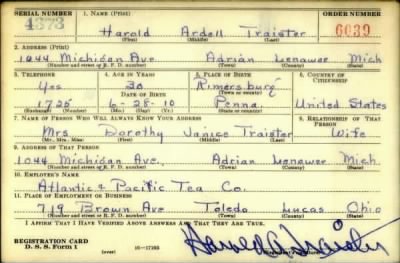 SERIAL NUMBER 1. NAME (Print) ORDER NUMBER
4373 Harold Ardell Traister 6039
(First) (Middle) (Last)
2. ADDRESS (Print)
1044 Michigan Ave Adrian Lenawee Mich
(Number and street or R. F. D. number) (Town) (County) (State)
3. TELEPHONE 4. AGE IN YEARS 5. PLACE OF BIRTH 6. COUNTRY OF CITIZENSHIP
Yes 30 Rimersburg
DATE OF BIRTH (Town or county)
1725 6-28-10 Penna. United States
(Exchange) (Number) (Mo.) (Day) (Yr.) (State or country)
7. NAME OF PERSON WHO WILL ALWAYS KNOW YOUR ADDRESS 8. RELATIONSHIP OF THAT PERSON
Mrs Dorothy Janice Traister Wife
(Mr., Mrs., Miss) (First) (Middle) (Last)
9. ADDRESS OF THAT PERSON
1044 Michigan Ave, Adrian Lenawee Mich.
(Number and street or R. F. D. number) (Town) (County) (State)
10. EMPLOYER'S NAME
Atlantic & Pacific Tea Co.
11. PLACE OF EMPLOYMENT OR BUSINESS
719 Brown Ave Toledo Lucas Ohio
(Number and street or R. F. D. number) (Town) (County) (State)
I AFFIRM THAT I HAVE VERIFIED ABOVE ANSWERS AND THAT THEY ARE TRUE.
REGISTRATION CARD
D. S. S. Form 1 (over) Harold A Traister